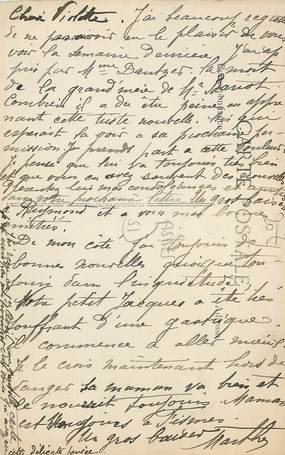 J'ai beaucoup regretté
de ne pas avoir eu le plaisir de vous
voir la semaine dernière. J'ai ap
pris par Mme la mort
de la grand'mère de Mr
Combien il a dû être peiné en appre
nant cette triste nouvelle. lui qui
espérait la voir a sa prochaine per
mission. Je prends part a cette douleur.
Je pense que lui va toujours très bien
et que vous en avez souvent des nouvelles
Présentez lui mes condoléances
dans votre prochaine lettre. Un gros baiser
Raymond et a vous mes bonnes
amitiés.
De mon côté j'ai toujours de
bonnes nouvelles quoique tou
jours dans l'inquiétude.
Notre petit Jacques a été très
souffrant d'une gastrique.
Il commence a aller mieux
Je le crois maintenant hors de
danger. La maman va bien et
le nourrit toujours. Maman
est toujours a
Un gros baiser Marthe
cette délicate pensée
CARTE POSTALE